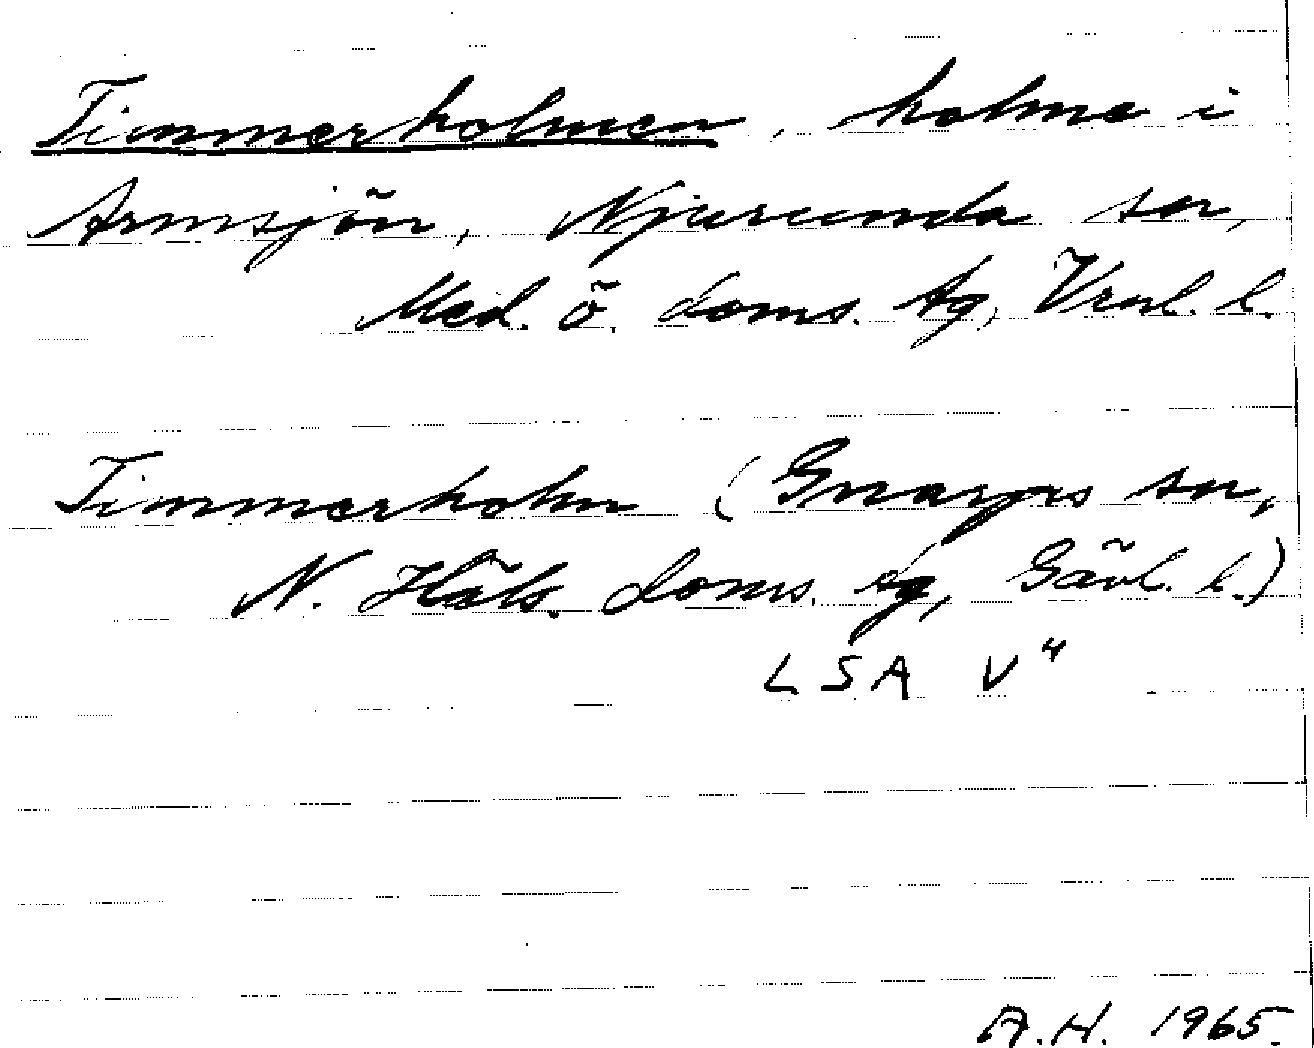 Timmerholmen, holme i
Armsjön, Njurunda sn,
Med. ö. doms. tg, Vrnl. l.
Timmerholm (Gnarps sn,
N. Häls. doms. tg, Gävl. l.)
LSA V"
A.H. 1965.